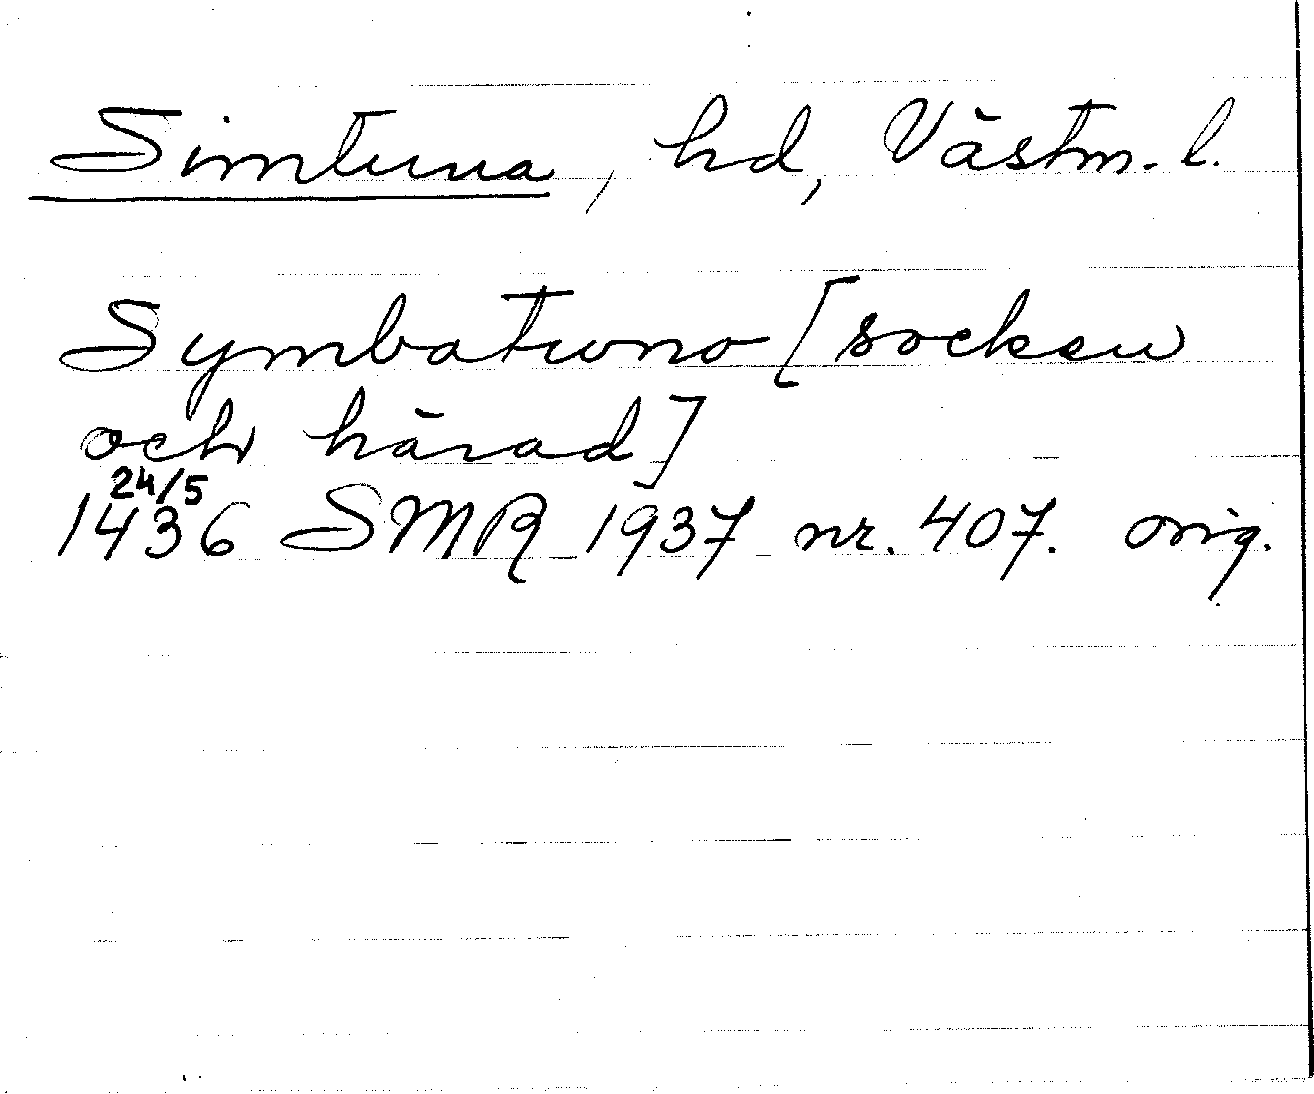 Simtuna, hd, Västm. l.
Symbatuna [socken
och härad]
24/5
1436 SMR 1937 nr. 407. orig.